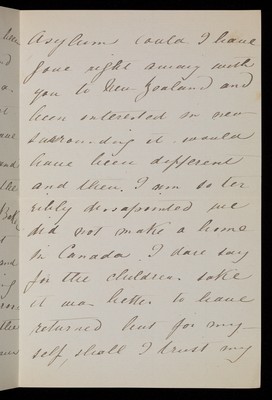 Asylum could I have
gone right away with
you to New Zealand and
been interested in new
surrounding it would
have been different
and then. I am so ter
ribly dissapointed we
did not make a home
in Canada. I dare say
for the children sake
it was better to have
returned but for my
self, shall I trust my